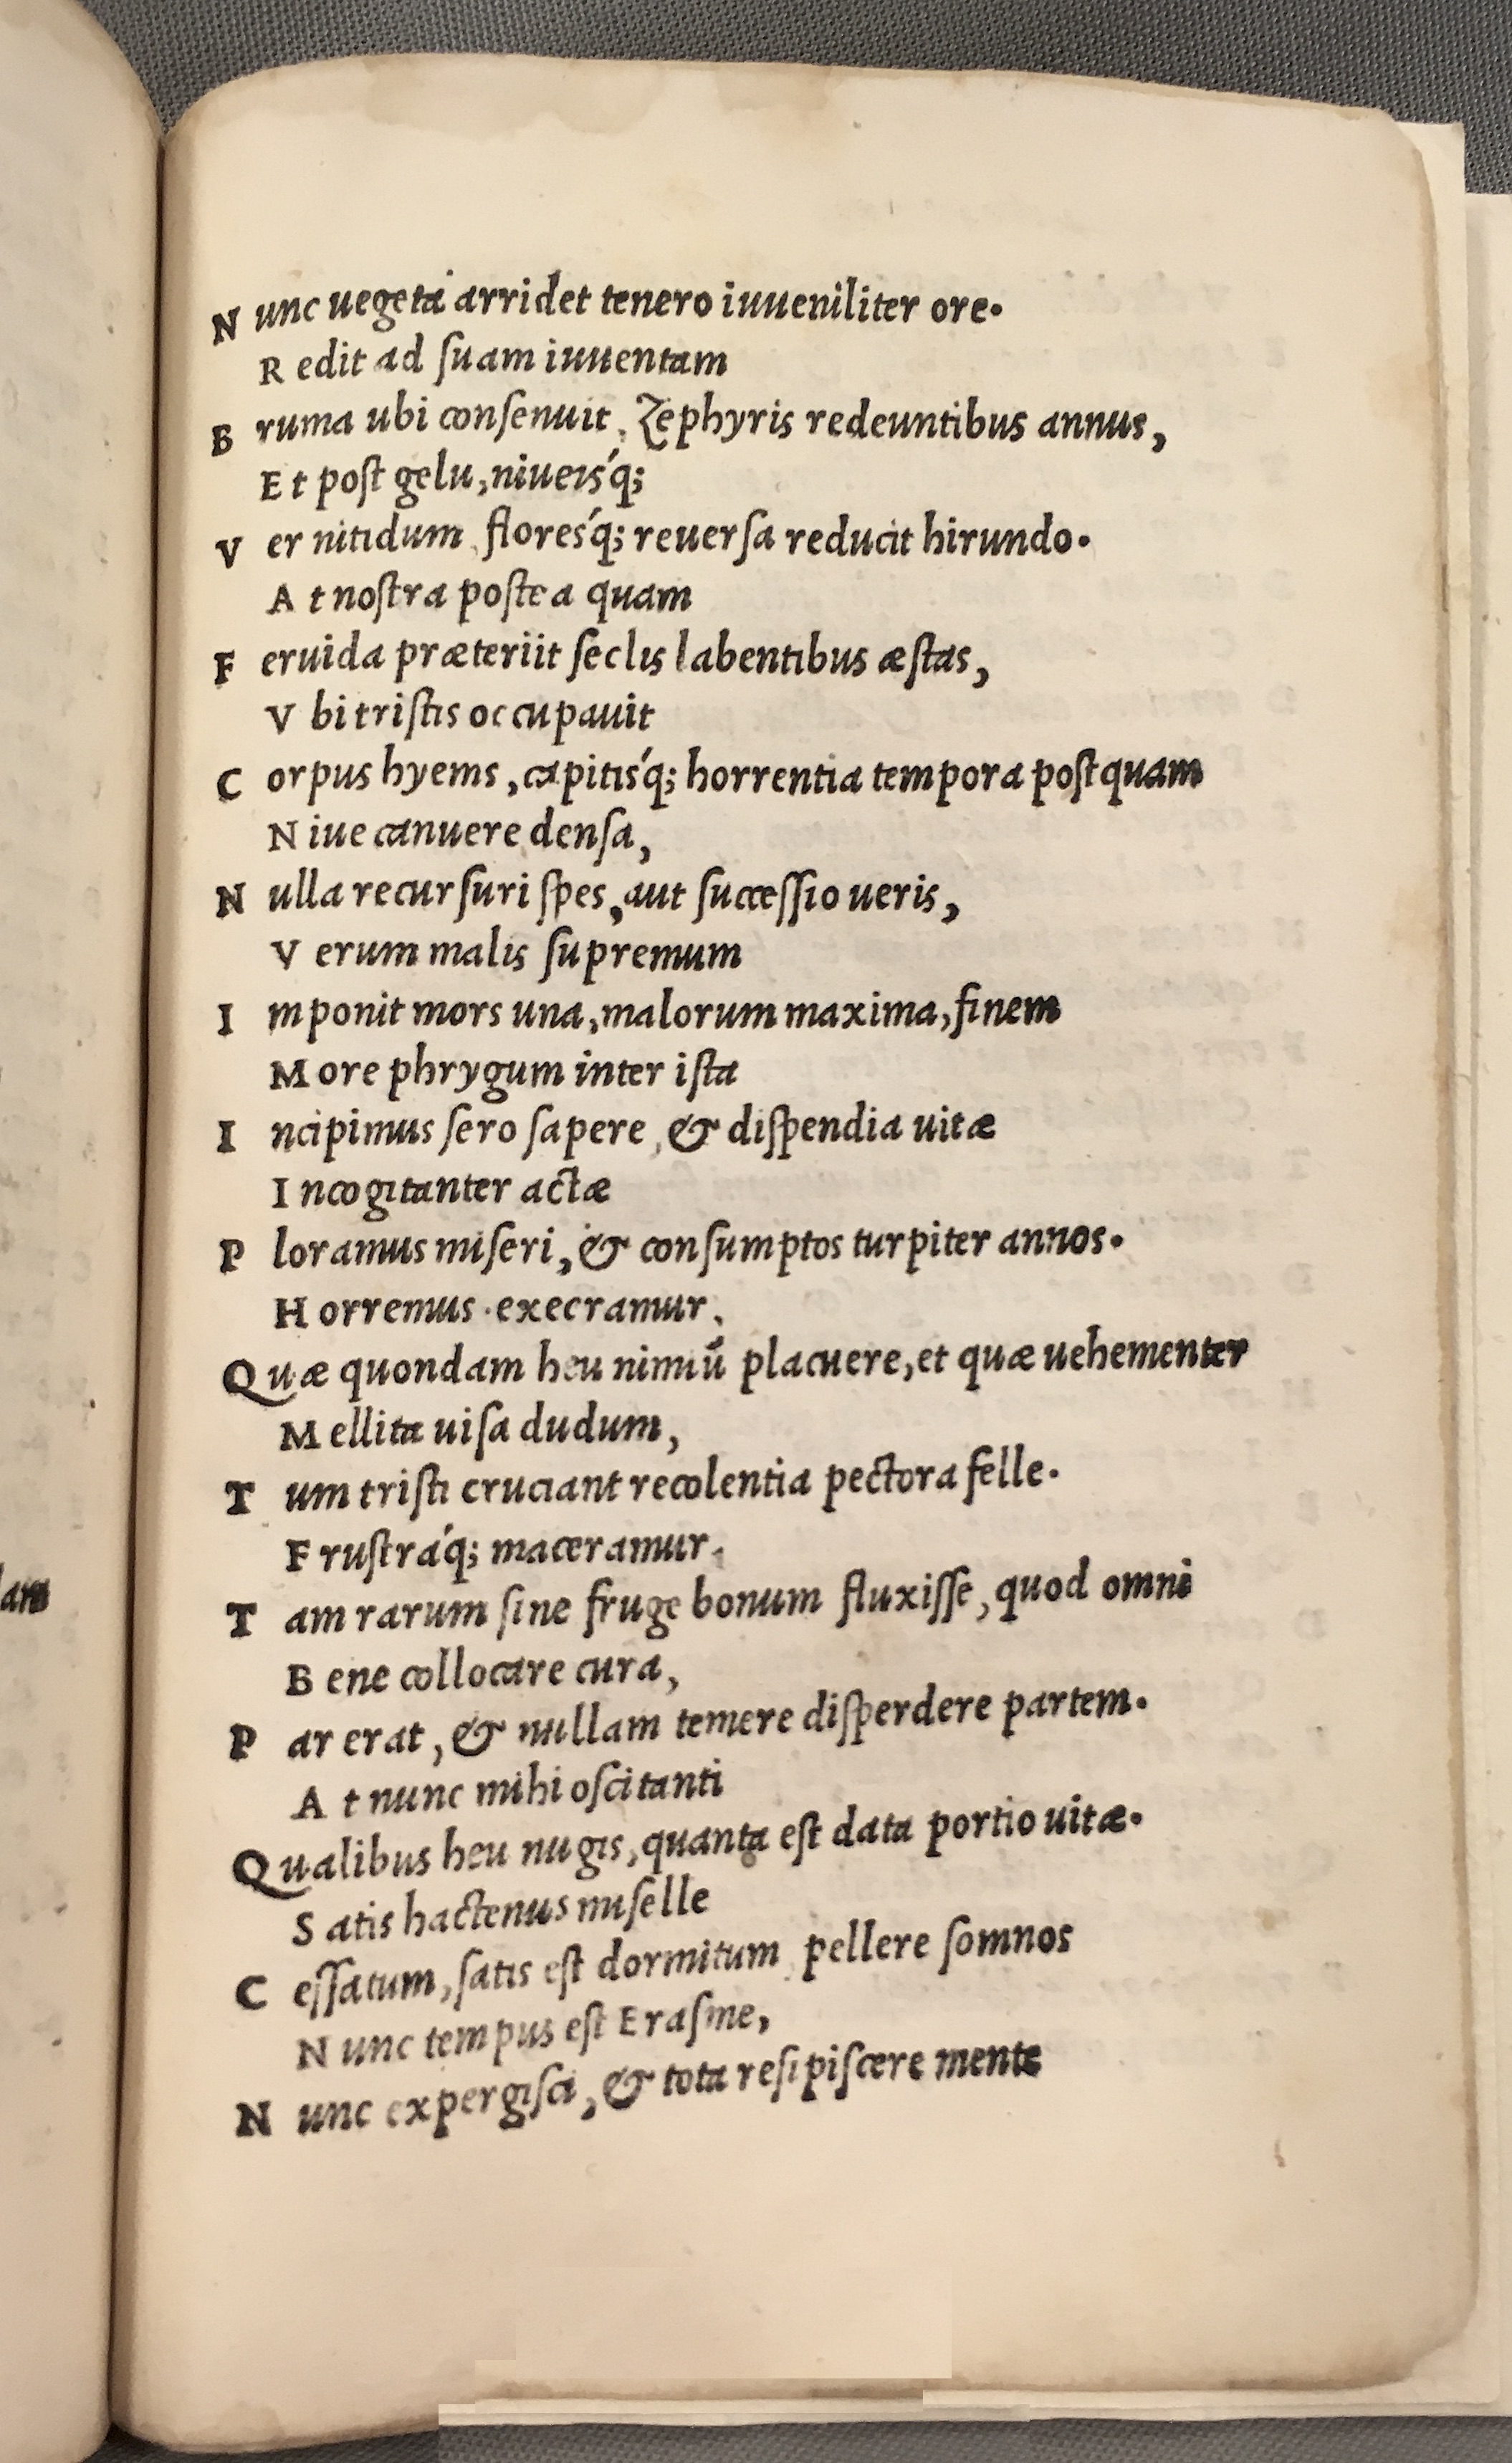 N unc uegeta arridet tenero iuueniliter ore.
R edit ad ſuam iuuentam
B ruma ubi conſenuit, Zephyris redeuntibus annus,
E t poſt gelu, niueisq́;
V er nitidum, floresq́; reuerſa reducit hirundo.
A t noſtra poſtea quam
F eruida præteriit ſeclis labentibus æſtas,
V bi triſtis occupauit
C orpus hyems, capitisq́; horrentia tempora poſtquam
N iue canuere denſa,
N ulla recurſuri ſpes, aut ſucceſſio ueris,
V erum malis ſupremum
I mponit mors una, malorum maxima, finem
M ore phrygum inter iſta
I ncipimus ſero ſapere, & diſpendia uitæ
I ncogitanter actæ
P loramus miſeri, & conſumptos turpiter annos.
H orremus. execramur,
Quæ quondam heu nimiū placuere, et quæ uehementer
M ellita uiſa dudum,
T um triſti cruciant recolentia pectora felle.
F ruſtráq; maceramur,
T am rarum ſine fruge bonum fluxiſſe, quod omni
B ene collocare cura,
P ar erat, & nullam temere diſperdere partem.
A t nunc mihi oſcitanti
Qualibus heu nugis, quanta eſt data portio uitæ.
S atis hactenus miſelle
C eſſatum, ſatis eſt dormitum, pellere ſomnos
N unc tempus eſt Eraſme,
N unc expergiſci, & tota reſipiſcere mente